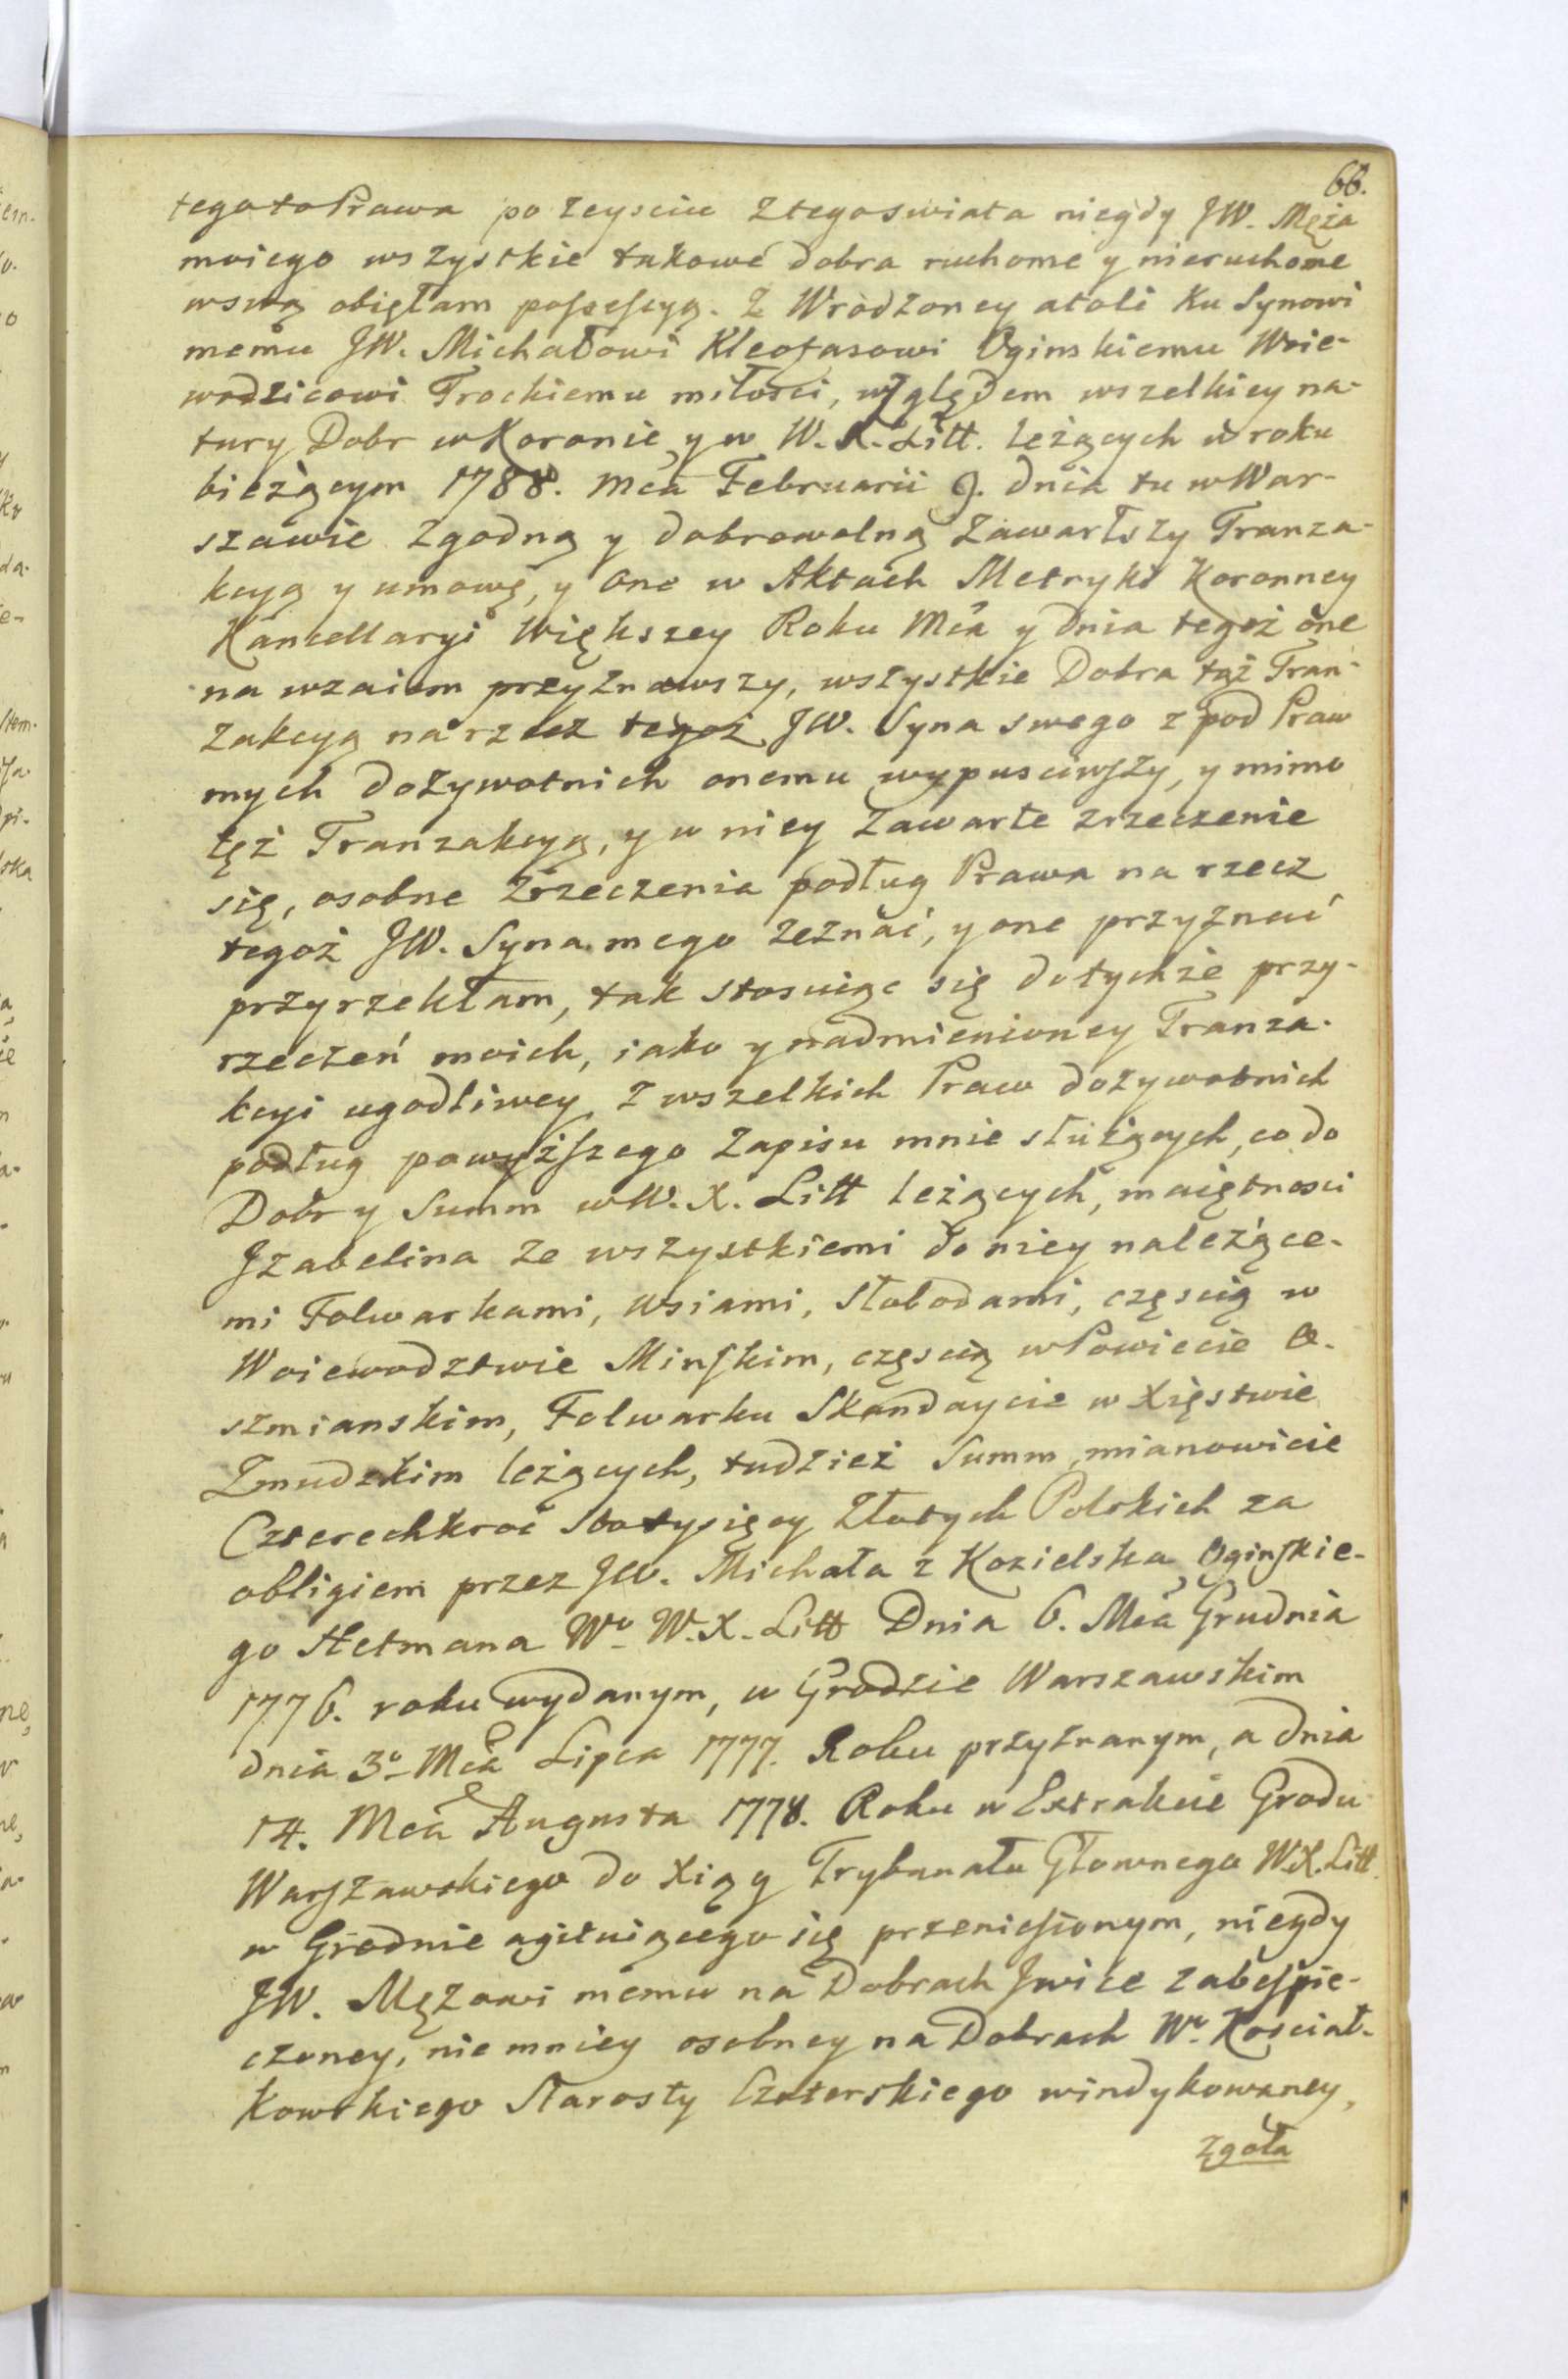 66.
tegoto Prawa po zeysciu z tegoswiata niegdy JW. Męża
moiego wszystkie takowe dobra ruchome y nieruchome
wswą obięłam possessyą. Z Wrodzoney atoli ku Synowi
memu JW. Michałowi Kleofasowi Oginskiemu Woie-
wodzicowi Trockiemu miłości, względem wszelkiey na-
tury Dobr w Koronie y w W. X. Litt. leżących w roku
bieżącym 1788. Mca Februarii 9. dnia tu w War-
szawie zgodną y dobrowolną zawarłszy Tranza-
kcyą y umowę, y one w Aktach Metryki Koronney
Kancellaryi Większey Roku Mca y dnia tegoż one
na wzaiem przyznawszy, wszystkie Dobra tąż Tran-
zakcyą na rzecz tegoż JW. Syna swego z pod Praw
mych dożywotnich onemu wypusciwszy, y mimo
tęż Tranzakcyą, y w niey zawarte zrzeczenie
się, osobne Zrzeczenia podług Prawa na rzecz
tegoż JW. Syna mego zeznać, y one przyznać
przyrzekłam, tak stosuiąc się do tychże przy-
rzeczeń moich, iako y nadmienioney Tranza-
kcyi ugodliwey, z wszelkich Praw dożywotnich
podług powyższego Zapisu mnie służących, co do
Dobr y Summ w W. X. Litt leżących, maiętnosci
Izabelina ze wszystkiemi do niey należące-
mi Folwarkami, wsiami, Słobodami, częscią w
Woiewodztwie Minskim, częscią w Powiecie O-
szmianskim, Folwarku Skandaycie w Xięstwie
Zmudzkim leżących, tudzież Summ, mianowicie
Czterechkroć Stotysięcy Złotych Polskich za
obligiem przez JW. Michała z Kozielska Oginskie-
go Hetmana Wo W. X. Litt Dnia 6. Mca Grudnia
1776. roku wydanym, w Grodzie Warszawskim
dnia 3o Mca Lipca 1777. Roku przyznanym, a dnia
14. Mca Augusta 1778. Roku w Extrakcie Grodu
Warszawskiego do Xiąg Trybunału Głownego W.X. Litt
w Grodnie agituiącego się przeniesionym, niegdy
JW. Mężowi memu na Dobrach Iwice zabespie-
czoney, nie mniey osobney na Dobrach Wo Kosciał-
kowskiego Starosty Czoterskiego windykowaney,
zgoła